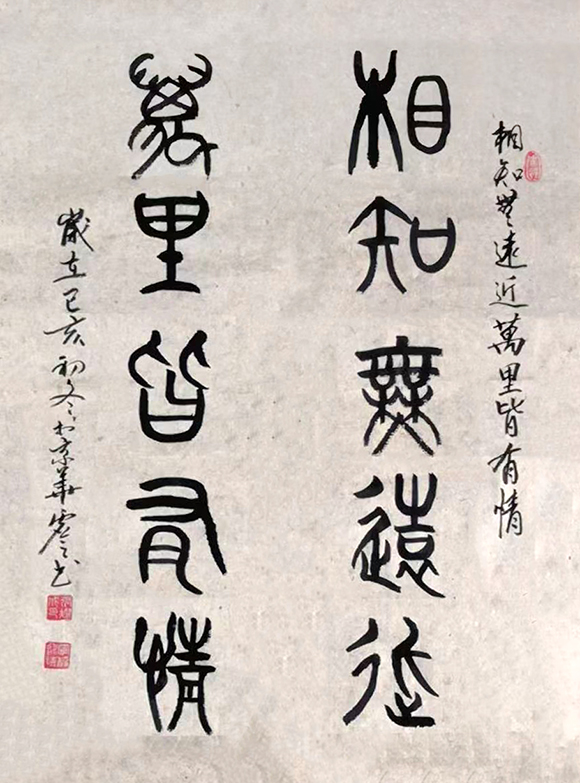 相知無遠近萬里皆有情
相知無遠近
萬里皆有情
歲在己亥初冬於京華